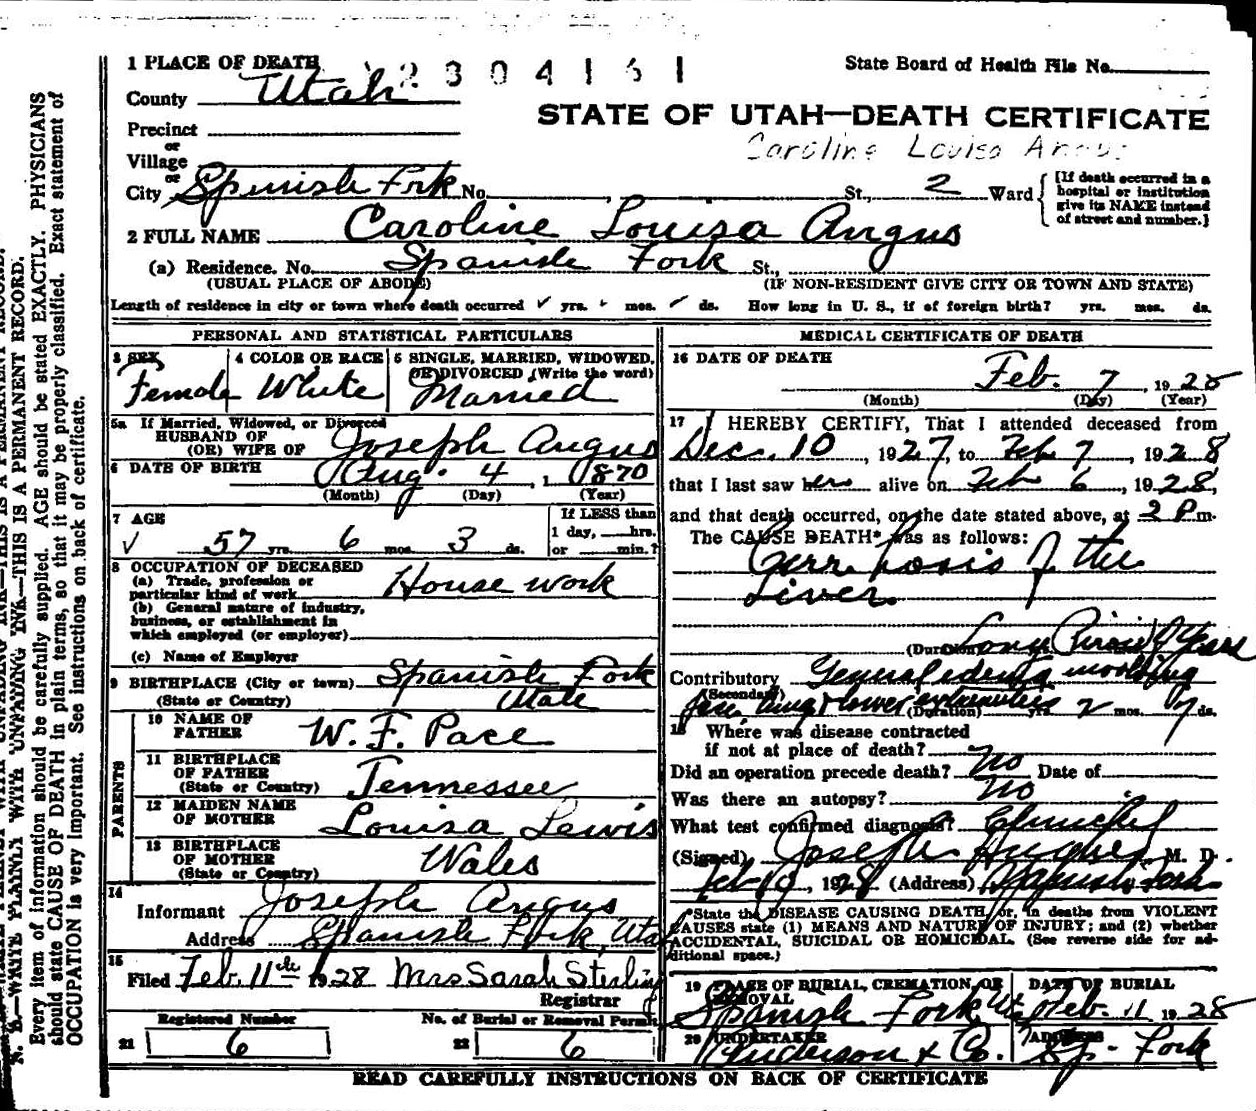 1 PLACE OF DEATH 2304161 State Board of Health File No.
County Utah
STATE OF UTAH—DEATH CERTIFICATE
Precinct
or
Village
Caroline Louisa Angus
or
City Spanish Fork No. St., 2 Ward [If death occurred in a hospital or institution give its NAME instead of street and number.]
2 FULL NAME Caroline Louisa Angus
(a) Residence. No. Spanish Fork St.,
(USUAL PLACE OF ABODE) (IF NON-RESIDENT GIVE CITY OR TOWN AND STATE)
Length of residence in city or town where death occurred yrs. mos. ds. How long in U. S., if of foreign birth? yrs. mos. ds.
PERSONAL AND STATISTICAL PARTICULARS
3 SEX Female
4 COLOR OR RACE White
5 SINGLE, MARRIED, WIDOWED, OR DIVORCED (Write the word) Married
5a If Married, Widowed, or Divorced
HUSBAND OF
(OR) WIFE OF Joseph Angus
6 DATE OF BIRTH Aug. 4, 1870
(Month) (Day) (Year)
7 AGE
57 yrs. 6 mos. 3 ds.
If LESS than
1 day, hrs.
or min.?
8 OCCUPATION OF DECEASED
(a) Trade, profession or
particular kind of work House work
(b) General nature of industry,
business, or establishment in
which employed (or employer)
(c) Name of Employer
9 BIRTHPLACE (City or town) Spanish Fork
(State or Country) Utah
PARENTS
10 NAME OF
FATHER W. F. Pace
11 BIRTHPLACE
OF FATHER
(State or Country) Tennessee
12 MAIDEN NAME
OF MOTHER Louisa Lewis
13 BIRTHPLACE
OF MOTHER
(State or Country) Wales
14
Informant Joseph Angus
Address Spanish Fork, Utah
15
Filed Feb. 11th 1928 Mrs Sarah Sterling
Registrar
Registered Number No. of Burial or Removal Permit
21 6 22 6
MEDICAL CERTIFICATE OF DEATH
16 DATE OF DEATH
Feb. 7, 1928
(Month) (Day) (Year)
17 I HEREBY CERTIFY, That I attended deceased from
Dec. 10, 1927, to Feb 7, 1928
that I last saw her alive on Feb 6, 1928,
and that death occurred, on the date stated above, at 2 P m.
The CAUSE DEATH* was as follows:
Cerrhosis of the
Liver
(Duration) Long Period of Years
Contributory General edema involving
(Secondary) face, lungs & lower extremities (Duration) yrs. 2 mos. 7 ds.
18 Where was disease contracted
if not at place of death?
Did an operation precede death? No Date of
Was there an autopsy? No
What test confirmed diagnosis?
(Signed) Joseph Hughes, M. D.
Feb 10, 1928 (Address) Spanish Fork
*State the DISEASE CAUSING DEATH, or, in deaths from VIOLENT
CAUSES state (1) MEANS AND NATURE OF INJURY; and (2) whether
ACCIDENTAL, SUICIDAL OR HOMICIDAL. (See reverse side for ad-
ditional space.)
19 PLACE OF BURIAL, CREMATION, OR REMOVAL Spanish Fork Ut
DATE OF BURIAL Feb. 11 1928
20 UNDERTAKER Anderson & Co.
ADDRESS Sp. Fork
READ CAREFULLY INSTRUCTIONS ON BACK OF CERTIFICATE
N. B.—WRITE PLAINLY WITH UNFADING INK—THIS IS A PERMANENT RECORD.
Every item of information should be carefully supplied. AGE should be stated EXACTLY. PHYSICIANS
should state CAUSE OF DEATH in plain terms, so that it may be properly classified. Exact statement of
OCCUPATION is very important. See instructions on back of certificate.